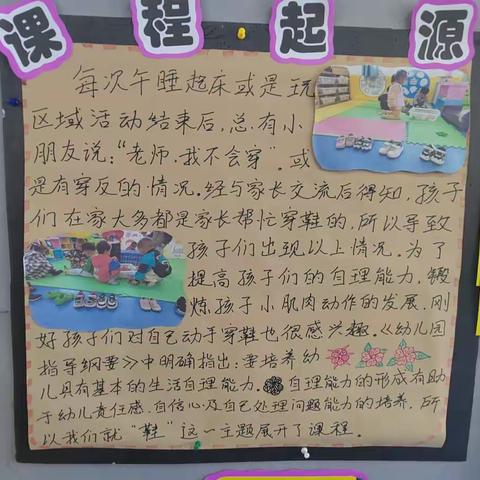 课程起源
每次午睡起床或是玩
区域活动结束后,总有小
朋友说:“老师,我不会穿”。或
是有穿反的情况。经与家长交流后得知,孩子
们在家大多都是家长帮忙穿鞋的,所以导致
孩子们出现以上情况。为了
提高孩子们的自理能力,锻
炼孩子小肌肉动作的发展,刚
好孩子们对自己动手穿鞋也很感兴趣。《幼儿园
指导纲要》中明确指出:要培养幼
儿具有基本的生活自理能力。自理能力的形成有助
于幼儿责任感、自信心及自己处理问题能力的培养,所
以我们就“鞋”这一主题展开了课程。